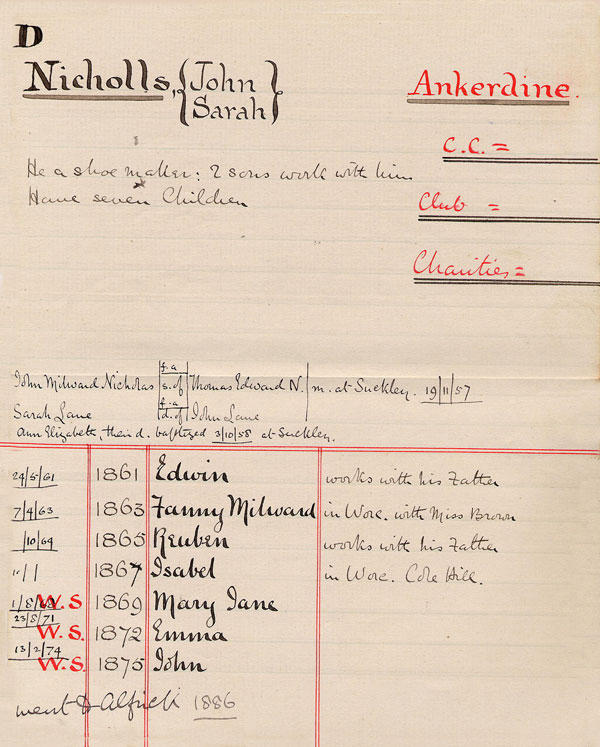 D
Nicholls, {John
Sarah}
Ankerdine.
C.C. =
Club =
Charities =
He a shoe maker: 2 sons work with him
Have seven Children
f.a
John Milward Nicholas s. of Thomas Edward N. m. at Suckley. 19/11/57
f.a
Sarah Lane d. of John Lane
Ann Elizabeth, their d. baptized 3/10/58 at Suckley.
24/5/61 1861 Edwin works with his Father
7/4/63 1863 Fanny Milward in Worc. with Miss Brown
/10/64 1865 Reuben works with his Father
1867 Isabel in Worc. Cole Hill.
W.S 1869 Mary Jane
23/8/71
W.S. 1872 Emma
13/2/74
W.S. 1875 John
went to Alfrick 1886